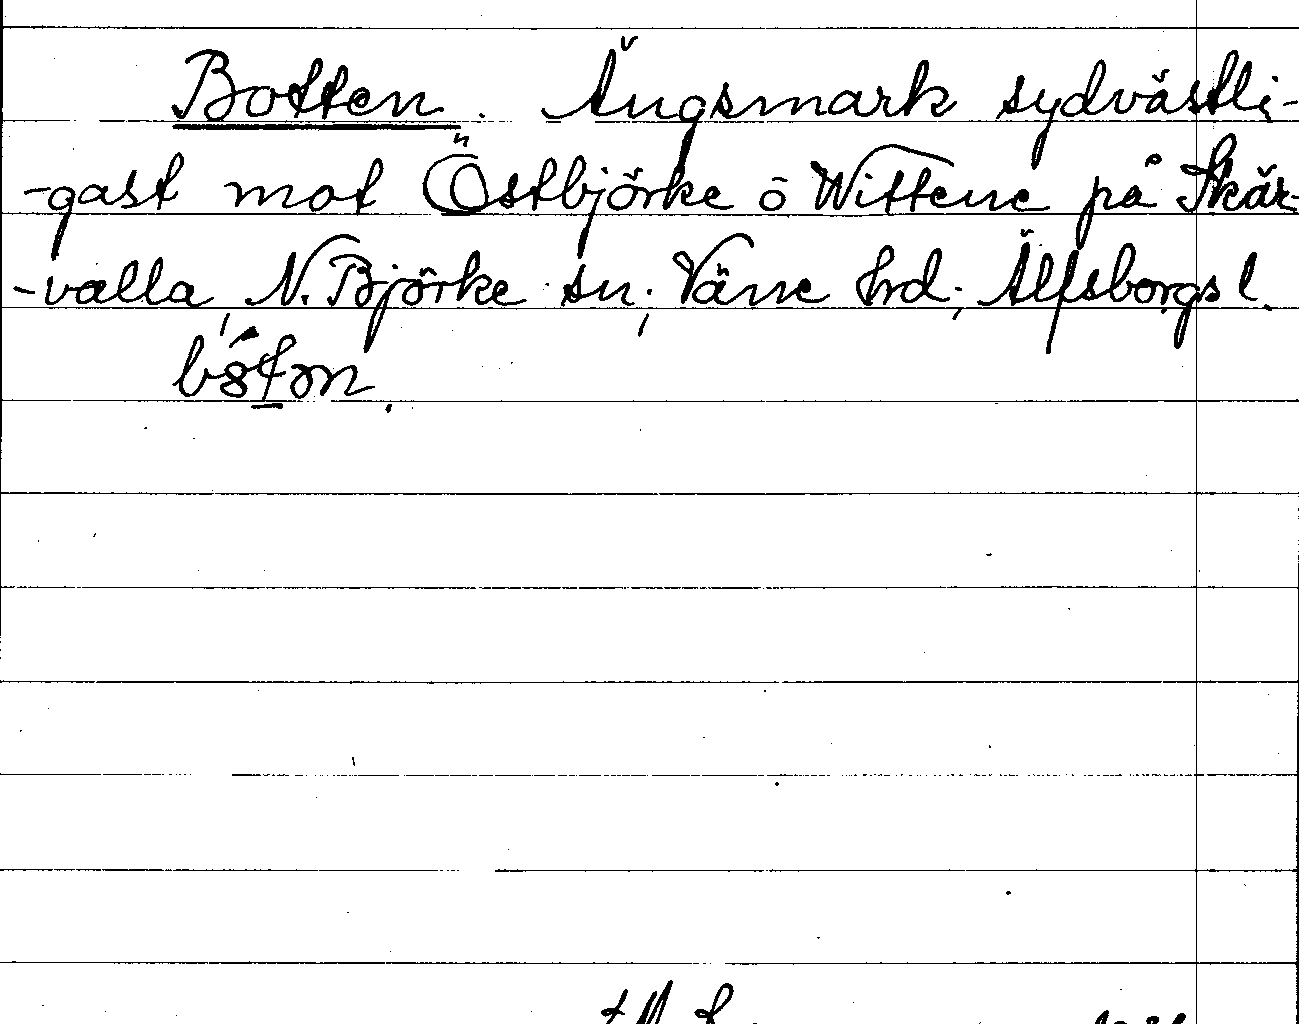 Botten. Ängsmark sydvästli-
-gast mot Östbjörke o Wittene på Skär-
-valla, N. Björke sn, Väne hrd, Älfsborgs l.